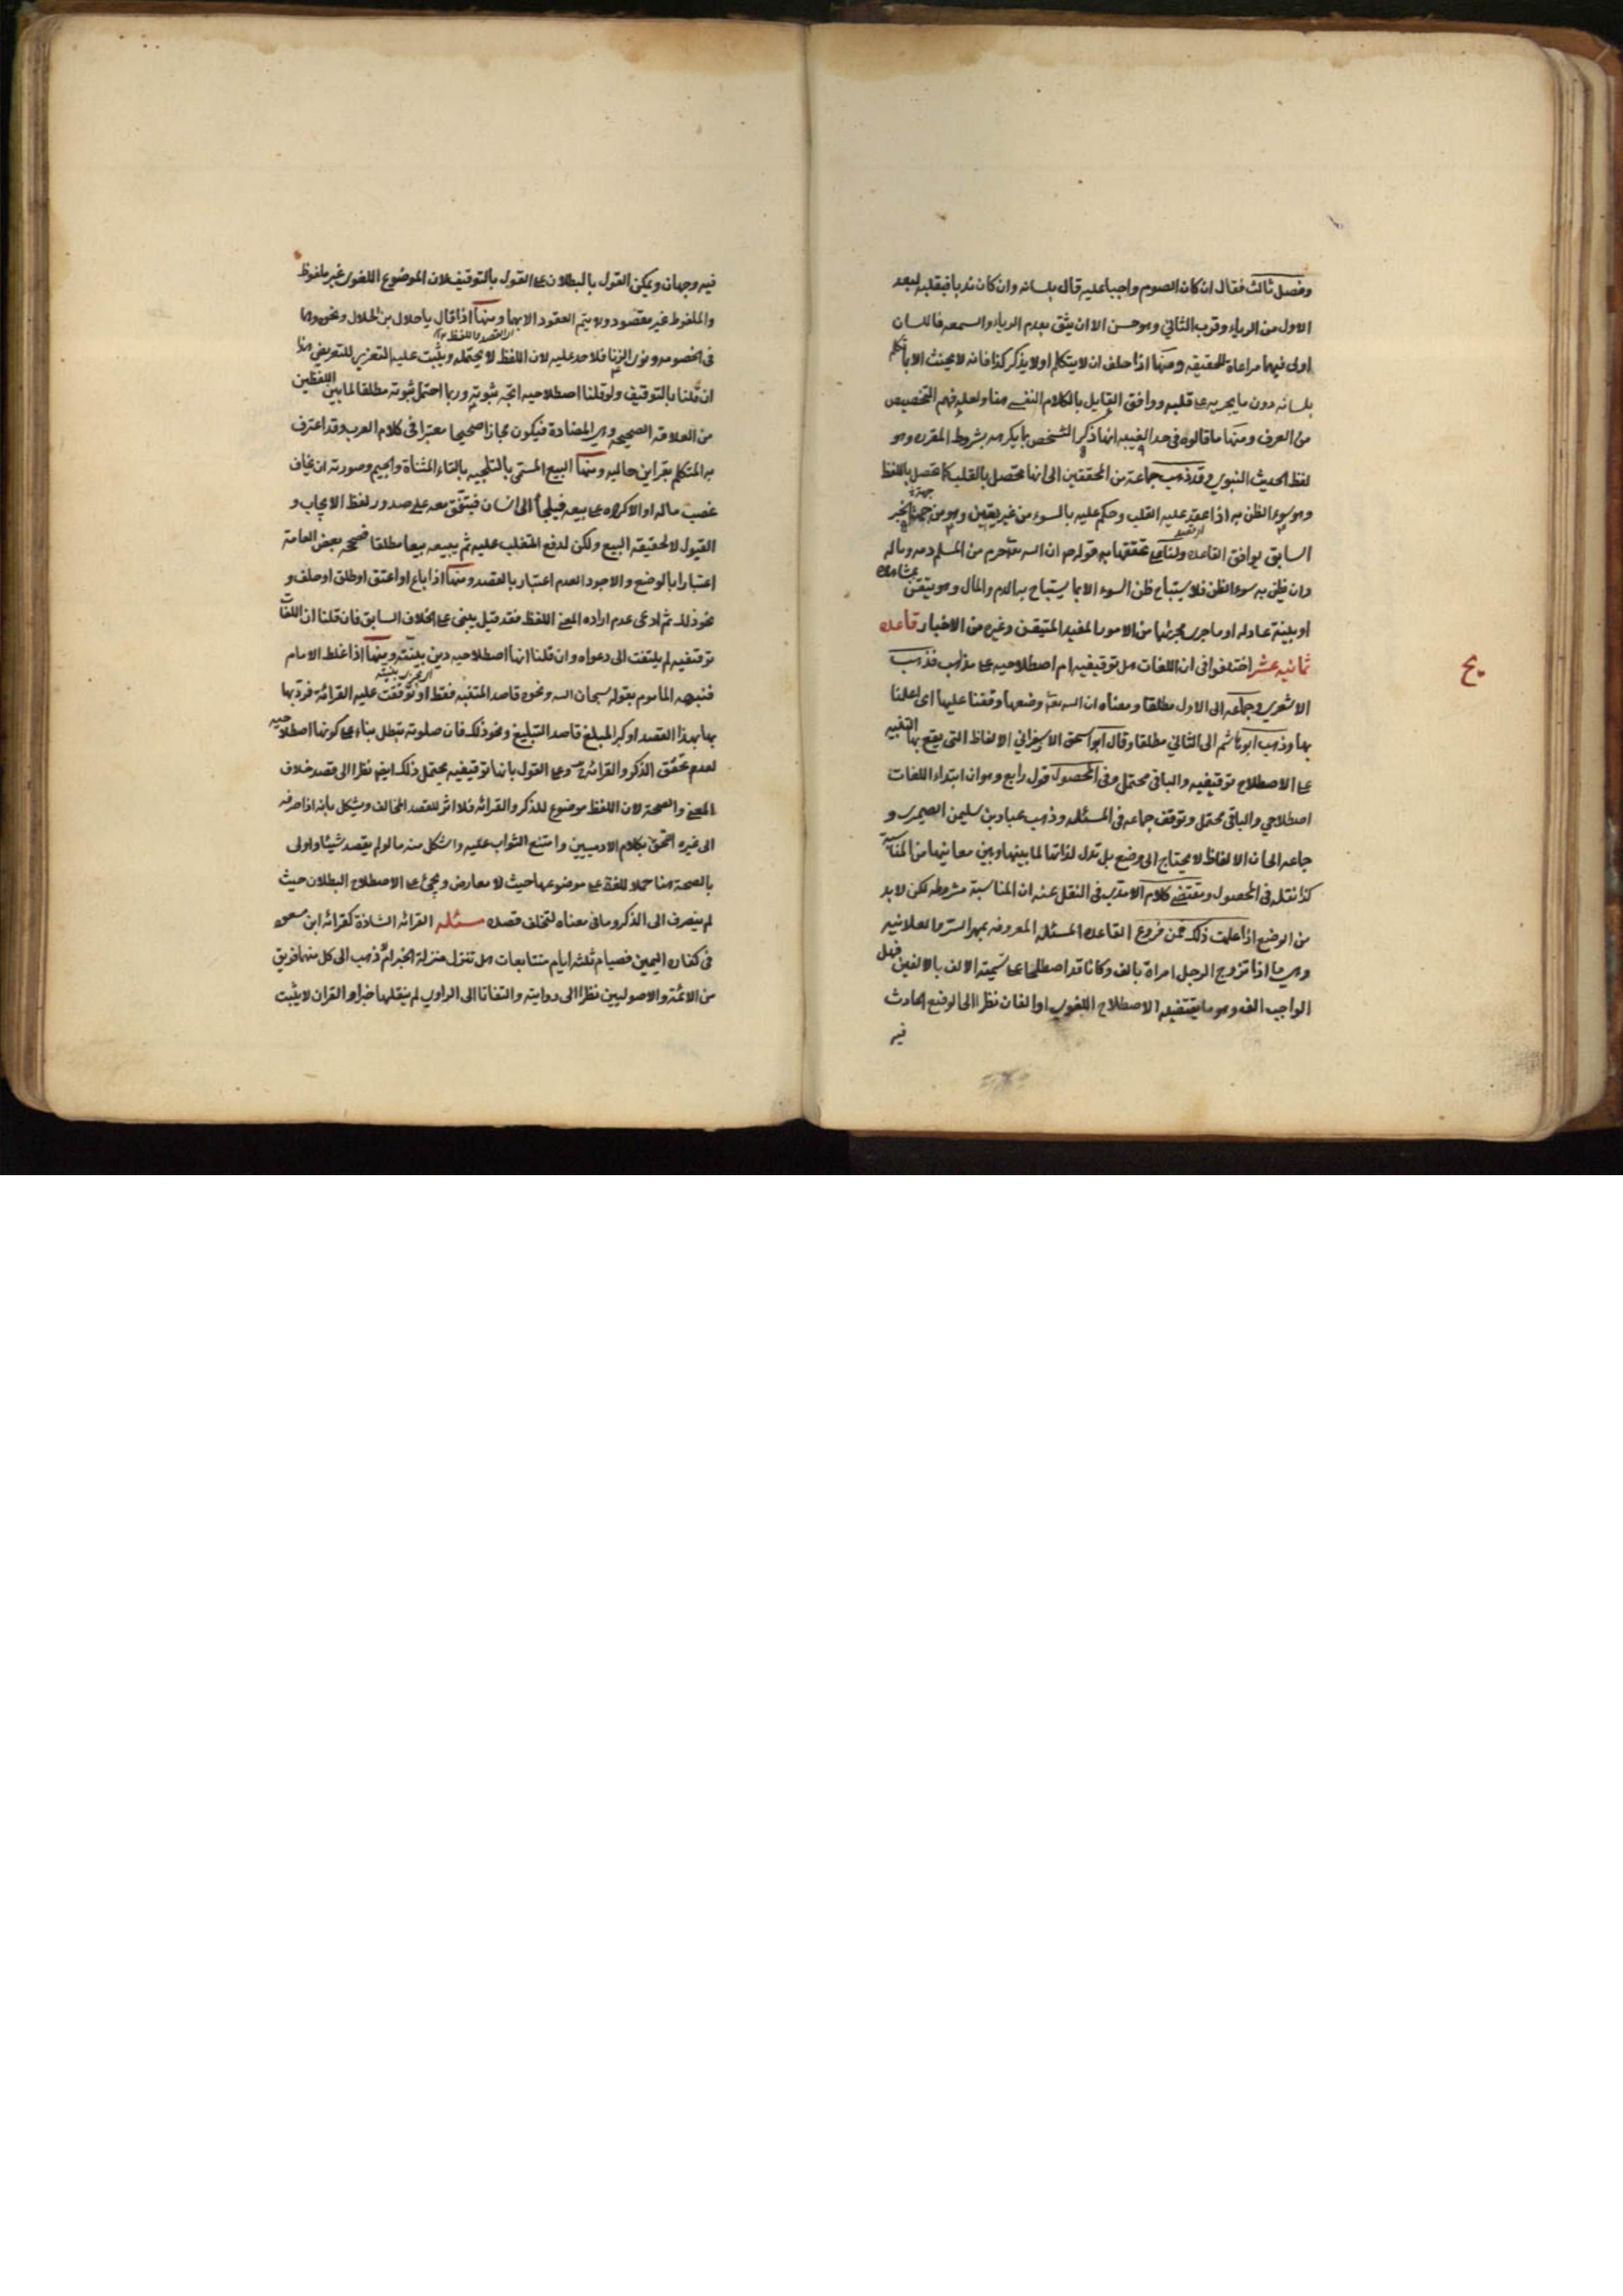 وفصل ثالث فقال ان كان الصوم واجبا عليه قال بلسانه وان كان ندبا فبقلبه لبعد
الاول من الرياء وقرب الثاني وهو حسن الا ان يثق بعدم الرياء والسمعه فاللسان
اولى فيهما مراعاة للحقيقه ومنها اذا حلف ان لا يتكلم او لا يذكر كذا فانه لا يحنث الا بالتكلم
بلسانه دون ما يجريه على قلبه ووافق القايل بالكلام النفسي هنا ولعله فهم التخصيص
من العرف ومنها ما قالوه في حد الغيبه انها ذكر الشخص بما يكرهه بشروطه المقرره وهو
لفظ الحديث النبوي وقد ذهب جماعة من المحققين الى انها تحصل بالقلب كما تحصل باللفظ
وهو سوء الظن به اذا عقد عليه القلب وحكم عليه بالسوء من غير يقين وهو من جهة الخبر
السابق يوافق القاعده ولنا على تحققها به قوله ص ان الله تعالى حرم من المسلم دمه وماله
وان يظن به سوء الظن فلا يستباح ظن السوء الا بما يستباح به الدم والمال وهو تيقن بمشاهده
او بينة عادله او ما جرى مجراهما من الامور المفيد المتيقن وغيره من الاخبار قاعده
ثمانيه عشر اختلفوا في ان اللغات هل توقيفيه ام اصطلاحيه على مذاهب فذهب
يح
الاشعري وجماعه الى الاول مطلقا ومعناه ان الله تعالى وضعها وقفنا عليها اى اعلمنا
بها وذهب ابو هاشم الى الثاني مطلقا وقال ابو اسحق الاسفراني الالفاظ التي يقع بها التنبيه
على الاصطلاح توقيفيه والباقي محتمل وفي المحصول قول رابع وهو ان ابتداء اللغات
اصطلاحي والباقي محتمل وتوقف جماعه في المسئله وذهب عباد بن سليمن الصيمري و
جماعه الى ان الالفاظ لا يحتاج الى وضع بل تدل لذاتها لما بينها وبين معانيها من المناسبة
كذا نقله في المحصول ومقتضى كلام الامدي في النقل عنه ان المناسبة مشروطه لكن لا بد
من الوضع اذا علمت ذلك فمن فروع القاعده المسئله المعروفه بمهر السر والعلانيه
وهي ما اذا تزوج الرجل امراة بالف وكانا قد اصطلحا على تسمية الالف بالالفين فهل
الواجب الف وهو ما يقتضيه الاصطلاح اللغوي او الفان نظرا الى الوضع الحادث
فيه
فيه وجهان ويمكن القول بالبطلان على القول بالتوقيف لان الموضوع اللغوي غير ملفوظ
والملفوظ غير مقصود ولا يتم العقود الا بهما ومنها اذا قال يا حلال بن الحلال ونحوه وهما
اى القصد واللفظ
في الخصومه ونوى الزنا فلا حد عليه لان اللفظ لا يحتمله ويثبت عليه التعزير للتعريض هذا
ان قلنا بالتوقيف ولو قلنا اصطلاحيه اتجه ثبوته وربما احتمل ثبوته مطلقا لما بين اللفظين
من العلاقه الصحيحه وهي المضادة فيكون مجازا صحيحا معتبرا في كلام العرب وقد اعترف
به المتكلم بقراين حاليه ومنها البيع المسمى بالتلجيه بالتاء المثناة والجيم وصورته ان يخاف
غصب ماله او الاكراه على بيعه فيلجأ الى انسان فيتفق معه على صدور لفظ الايجاب و
القبول لا لحقيقه البيع ولكن لدفع المتغلب عليه ثم يبيعه بيعا مطلقا فصححه بعض العامة
اعتبارا بالوضع والاجود العدم اعتبار بالقصد ومنها اذا باع او اعتق او طلق او حلف و
نحو ذلك ثم ادعى عدم ارادة المعنى اللفظ فقد قيل يبنى على الخلاف السابق فان قلنا ان اللغات
توقيفيه لم يلتفت الى دعواه وان قلنا انها اصطلاحيه دين بينته ومنها اذا غلط الامام
فنبهه الماموم بقوله سبحان الله ونحوه قاصد التنبيه فقط او توقفت عليه القرائة فرد بها
بها بهذا القصد او كبر المبلغ قاصد التبليغ ونحو ذلك فان صلوته تبطل بناء على كونها اصطلاحيه
لعدم تحقق الذكر والقرائة وعلى القول بانها توقيفيه يحتمل ذلك ايضا نظرا الى قصد خلاف
المعنى والصحة لان اللفظ موضوع للذكر والقرائه فلا اثر للقصد المخالف ويشكل بانه اذا صرفه
الى غيره التحق بكلام الادميين وامتنع الثواب عليه واشكل منه ما لو لم يقصد شيئا واولى
بالصحة هنا حملا للفظ على موضوعها حيث لا معارض ويجئ على الاصطلاح البطلان حيث
لم ينصرف الى الذكر وما في معناه لتخلف قصده مسئله القرائه الشاذة كقرائه ابن مسعود
في كفاره اليمين فصيام ثلثه ايام متتابعات هل تنزل منزلة الخبر ام لا ذهب الى كل منها فريق
من الائمة والاصوليين نظرا الى روايته والتفاتا الى الراوي لم ينقلها خبرا والقران لا يثبت